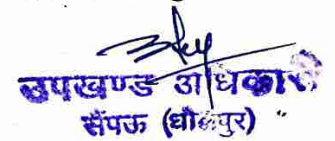 उपखण्ड अधिकारी
सैंपऊ (धौलपुर)